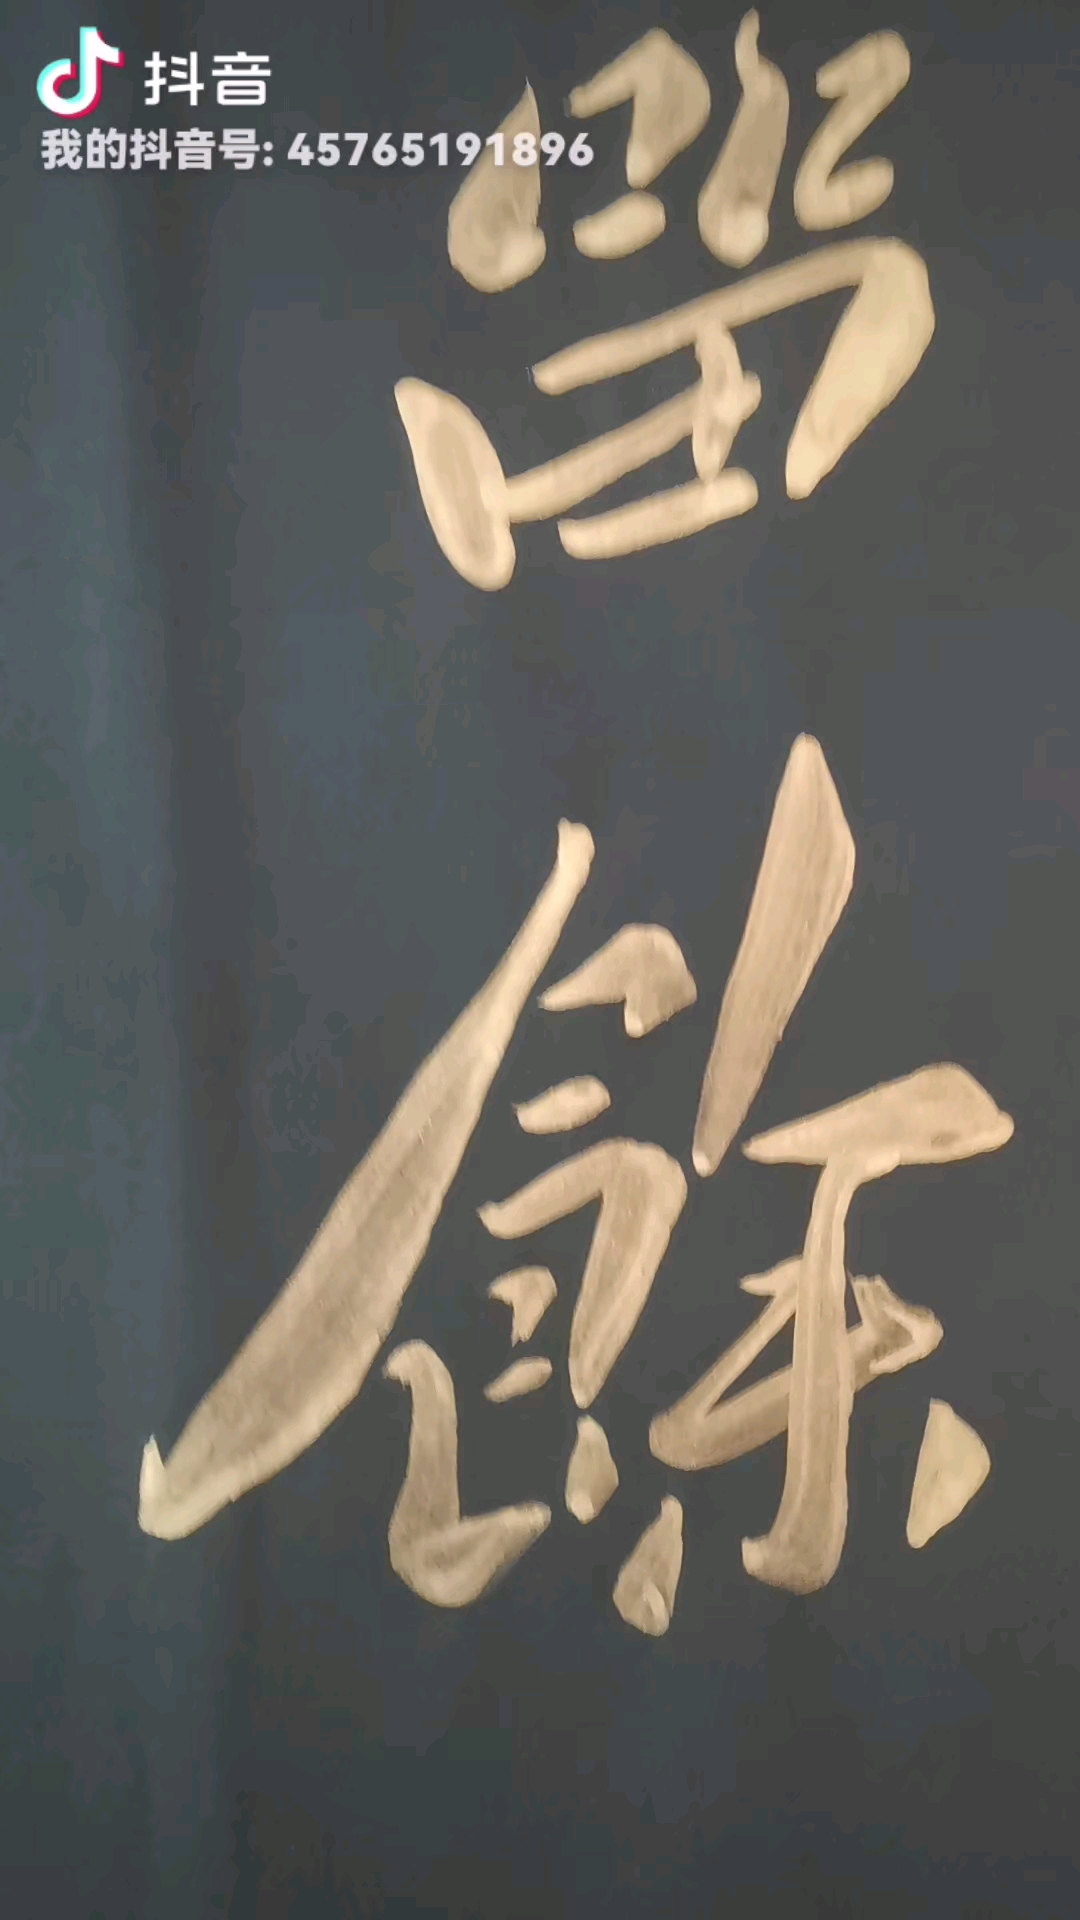 抖音
我的抖音号: 45765191896
留
餘